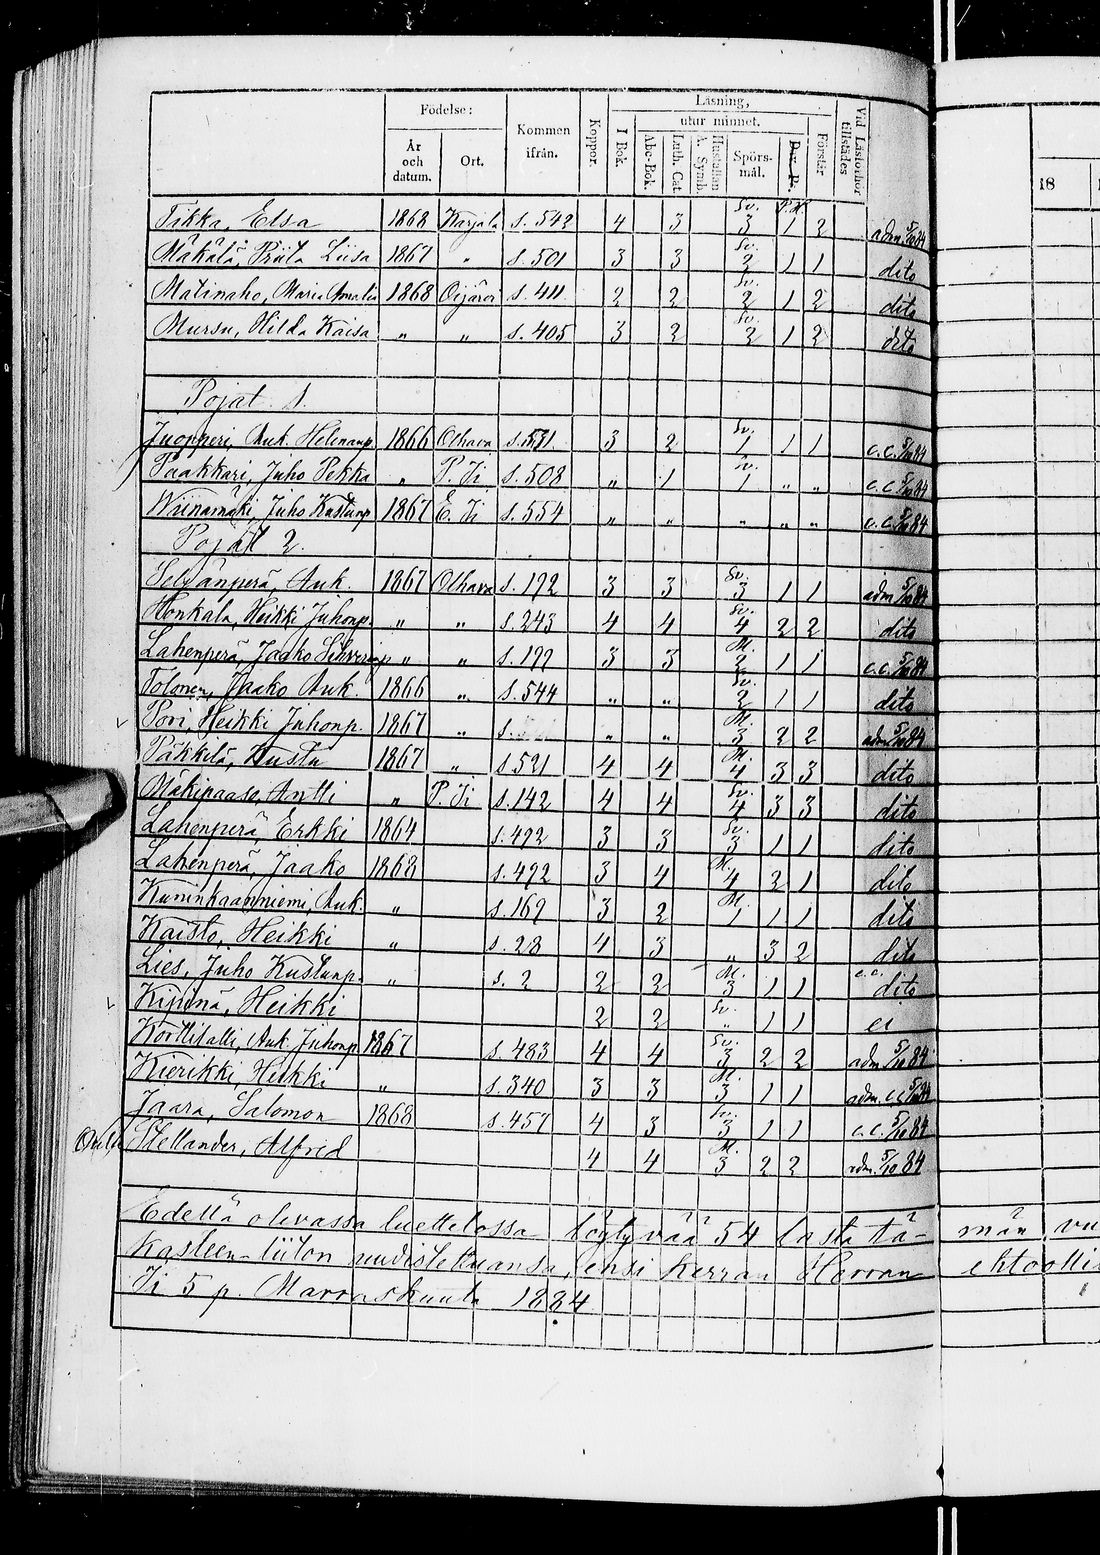 Födelse:
År och datum.
Ort.
Kommen ifrån.
Koppor.
Läsning,
I Bok.
utur minnet.
Abc-Bok.
Luth. Cat.
Hustaflan A. Symb.
Spörsmål.
Förstår
Vid Läsförhör tillstädes
18
Tikka, Elsa 1868 Karjala s. 542 4 3 Sv. 3 1 2 adm 5/10 84
Mäkälä, Priita Liisa 1867 " s. 501 3 3 Sv. 2 1 1 dito
Matinaho, Maria Amalia 1868 Oijärvi s. 411 2 2 Sv. 2 1 2 dito
Mursu, Hilda Kaisa " " s. 405 3 2 Sv. 2 1 2 dito
Pojat 1.
Juopperi, Auk. Helenanp. 1866 Olhava s. 531 3 2 Sv. 1 1 1 c.c. 5/10 84
Paakkari, Juho Pekka " P. Ii s. 508 " 1 Sv. 1 " " c.c. 5/10 84
Wiinamäki, Juho Kustanp 1867 E. Ii s. 554 " " " " " c.c. 5/10 84
Pojat 2.
Seljänperä, Auk. 1867 Olhava s. 192 3 3 Sv. 3 1 1 adm 5/10 84
Honkala, Heikki Juhonp. " " s. 243 4 4 Sv. 4 2 2 dito
Lahenperä, Jaako " " s. 199 3 3 M. 2 1 1 c.c. 5/10 84
Tolonen, Jaako Auk. 1866 " s. 544 " " Sv. 2 1 1 dito
Pori, Heikki Juhonp. 1867 " s. " " M. 3 2 2 adm 5/10 84
Päkkilä, Kusta 1867 " s. 521 4 4 M. 4 3 3 dito
Mäkipaaso, Antti " P. Ii s. 142 4 4 Sv. 4 3 3 dito
Lahenperä, Erkki 1864 s. 492 3 3 Sv. 3 1 1 dito
Lahenperä, Jaako 1868 s. 492 3 4 M. 4 2 1 dito
Kuninkaanniemi, Auk. " s. 169 3 2 M. 1 1 1 dito
Kaisto, Heikki " s. 28 4 3 " 3 2 dito
Lies, Juho Kustanp. " s. 2 2 2 M. 3 1 1 c.c. dito
Kipinä, Heikki 2 2 Sv. " 1 1 ei
Korttitalli, Auk. Juhonp. 1867 s. 483 4 4 Sv. 3 2 2 adm 5/10 84
Kierikki, Heikki " s. 340 3 3 M. 3 1 1 adm. c.c. 5/10 84
Jaara, Salomon 1868 s. 457 4 3 Sv. 3 1 1 c.c. 5/10 84
Stellander, Alfred 4 4 M. 3 2 2 adm. 5/10 84
Edellä olevassa luettelossa löytyvää 54 lasta tä- män vu
kasteen-liiton uudistettuansa, ensi kerran Herran ehtoollis
Ii 5 p. Marraskuuta 1884.